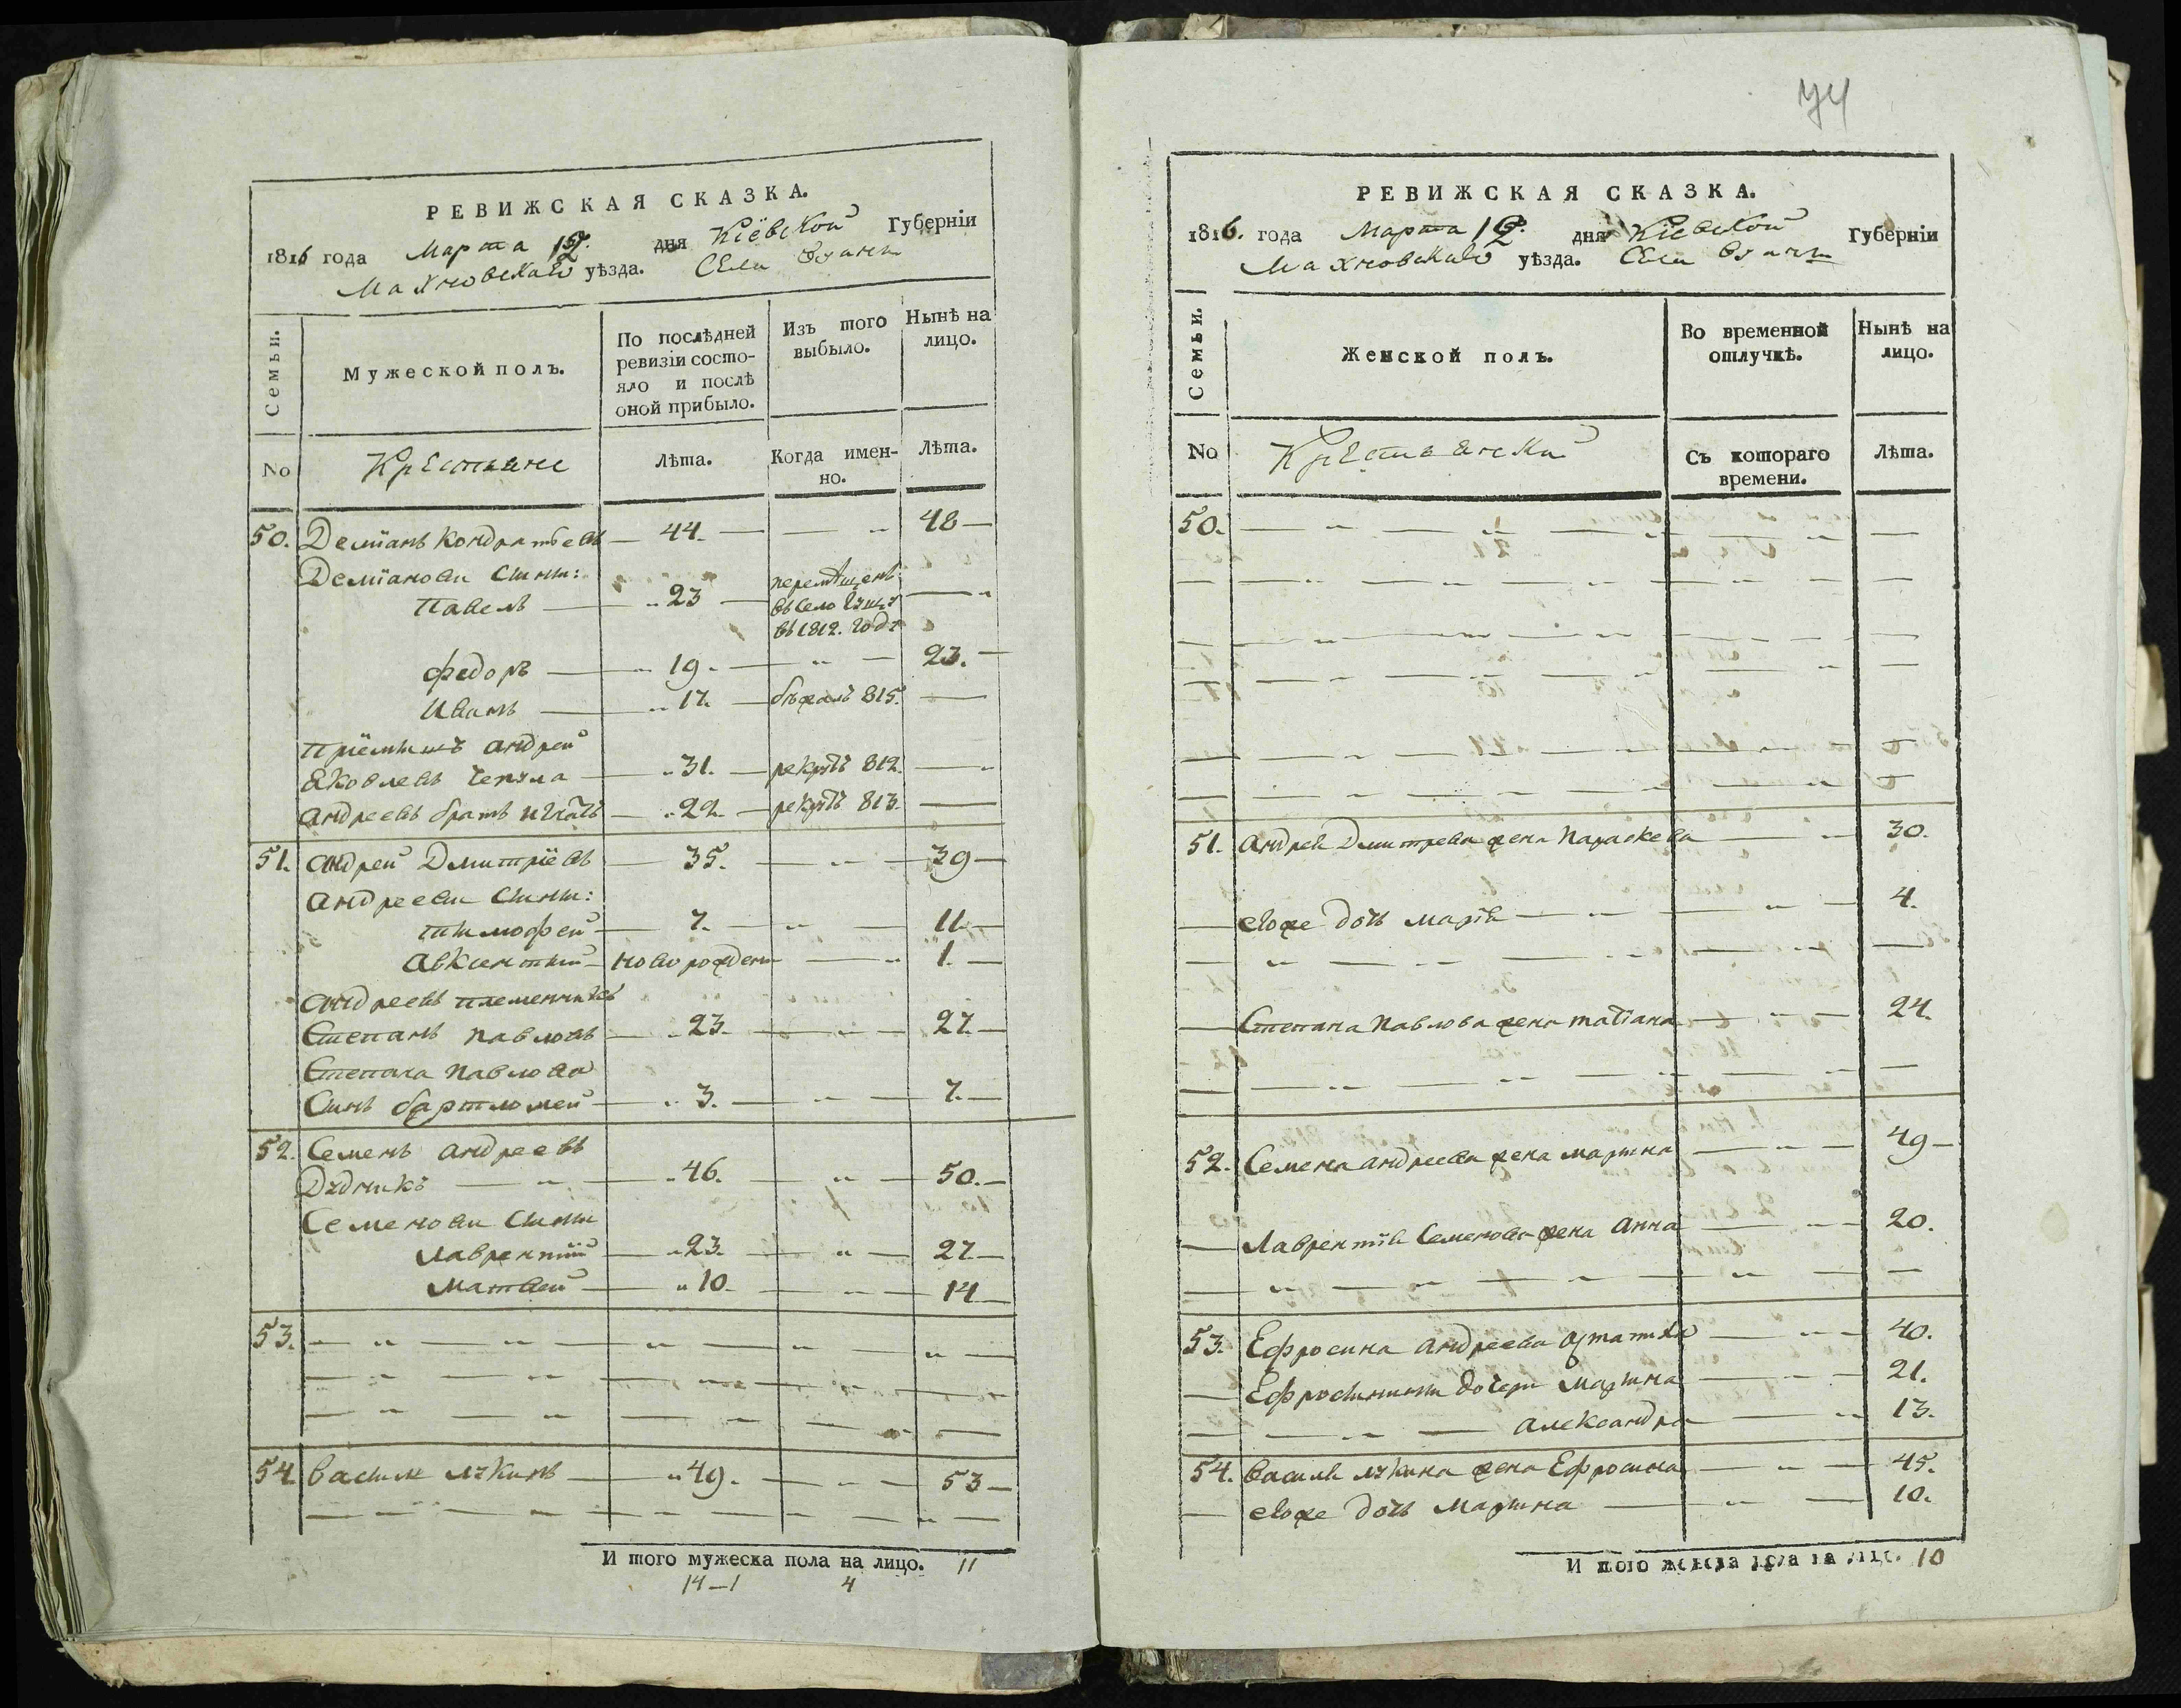 РЕВИЖСКАЯ СКАЗКА.
1816 года Марта 12. дня Кіевской Губерніи
Махновскаго уѣзда. Села
Семьи.
Мужеской полъ.
По послѣдней ревизіи состо-
яло и послѣ
оной прибыло.
Изъ того
выбыло.
Нынѣ на
лицо.
No
Крестьяне
Лѣта.
Когда имен-
но.
Лѣта.
50. Деміанъ Кондратьевъ — 44. — — „ 48 —
Деміанови Сини:
Павелъ — „ 23 — перемѣщенъ
въ село
въ 1812. годѣ — „
Федоръ — „ 19. — „ — 23. —
Иванъ — „ 17. — бѣжалъ 815. —
Пріемишъ Андрей
Яковлевъ Чепула — „ 31. — рекрутъ 812. — „
Андреевъ братъ Игнатъ — „ 22. — рекрутъ 813. —
51. Андрей Дмитріевъ — 35. — „ — 39 —
Андрееви Сини:
Тимофей — 7. — „ — 11. —
Авксентий — новорожденъ — „ 1. —
Андреевъ племенникъ
Степанъ Павловъ — „ 23. — „ — 27. —
Степана Павлова
Синъ Бартломей — „ 3. — „ — 7. —
52. Семенъ Андреевъ
Дудникъ — „ — „ 46. — „ — 50. —
Семенови Сини
Лаврентій — „ 23. — „ — 27 —
Матвей — „ 10. — „ — 14 —
53. — „ — „ — „ — „ — „ —
54 Василь Лукинъ — „ 49. — „ — 53 —
И того мужеска пола на лицо. 11
14 — 1 4
74
РЕВИЖСКАЯ СКАЗКА.
1816. года Марта 12. дня Кіевской Губерніи
Махновскаго уѣзда. Села
Семьи.
Женской полъ.
Во временной
отлучкѣ.
Нынѣ на
лицо.
No
Крестьянски
Съ котораго
времени.
Лѣта.
50. — „ — „ — „ — „ —
51. Андрея Дмитрева жена Параскева — „ 30.
— евоже дочь Марія — „ — „ — 4.
— Степана Павлова жена Татіана — „ — 24.
52. Семена Андреева жена Марина — „ — 49 —
— Лаврентія Семенова жена Анна — „ — 20.
53. Ефросина Андреева — „ — 40.
— Ефросинини дочери Марина — „ — 21.
— „ — Александра — „ 13.
54. Василя Лукина жена Ефросина — „ — 45.
— евоже дочь Марина — „ — 10.
И того женска пола на лицо. 10